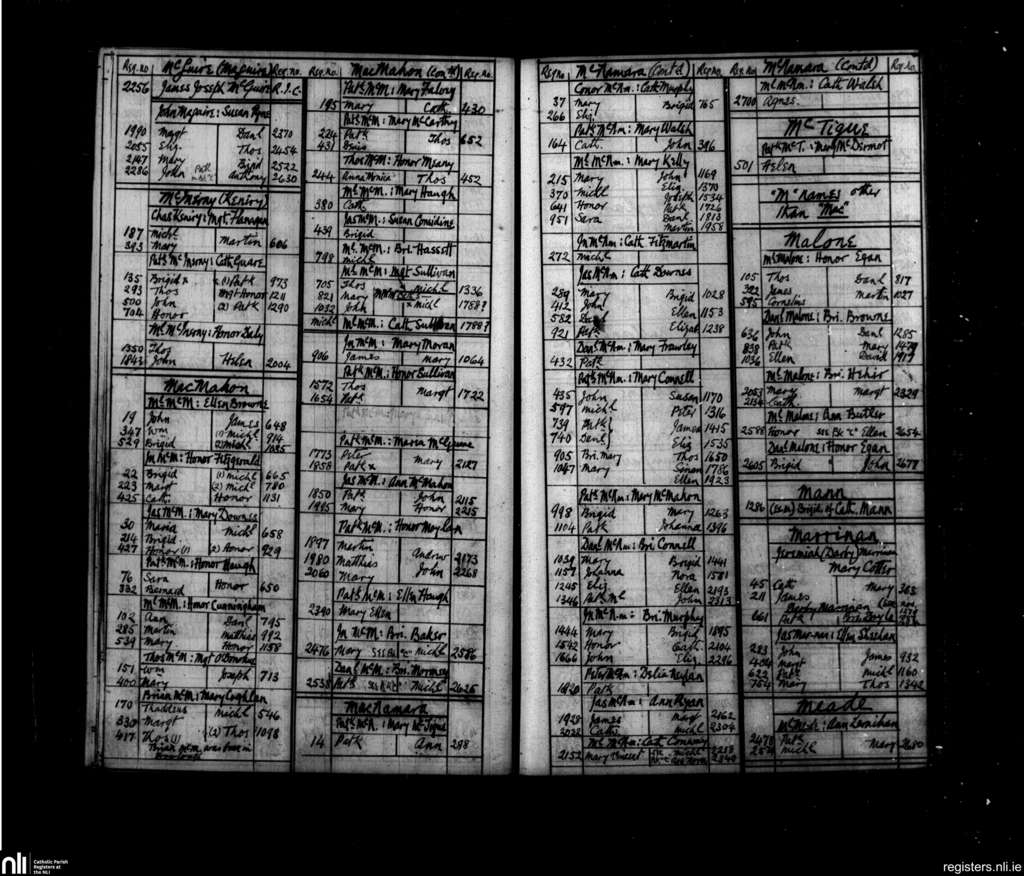 Reg.no McGuire (Maguire) Reg.no.
2256 James Joseph McGuire R.I.C.
John Maguire: Susan Pyne
1990 Magt Danl 2370
2055 Eliz. Thos 2454
2147 Mary Bigd 2522
2286 John Anthony 2630
McInerny (Keniry)
Chas Keniry: Mgt Flanagan
187 Michl Martin 606
393 Mary
Patk McInerny: Cath Queare
135 Brigid x (1) Patk 973
293 Thos Mgt Honor 1211
500 John (2) Patk 1290
704 Honor
Ml McInerny: Honor Daly
1350 Thos
1843 John Helen 2004
MacMahon
Ml McM: Ellen Browne
19 John James 648
347 Wm (1) Michl 914
529 Brigid (2) Michl 1085
Jn McM: Honor Fitzgerald
22 Brigid (1) Michl 665
223 Margt (2) Michl 780
425 Cath. Honor 1131
Jas McM.: Mary Downes
30 Maria Michl 658
214 Brigid
427 Honor (1) (2) Honor 929
Patk McM.: Honor Haugh
76 Sara Honor 650
332 Bernard
Ml McM: Honor Cunningham
102 Ann Danl 795
285 Martin Mathias 992
539 Mary Honor 1158
Thos McM: Mgt O'Donohue
151 Wm Joseph 713
400 Mary
Brian McM: Mary Coghlan
170 Thaddeus Michl 546
330 Margt
417 Thos (1) (2) Thos 1098
Reg.no. MacMahon (Contd) Reg.no.
Patk McM: Mary Falvey
195 Mary Cath 430
Patk McM: Mary McCarthy
224 Patk Thos 652
431 Denis
Thos McM: Honor Meany
244 Anna Monica Thos 452
Ml McM: Mary Haugh
380 Cath
Jas McM.: Susan Considine
439 Brigid
Ml. McM.: Bri. Hassett
798 Michl
Ml McM: Mgt Sullivan
705 Thos x Michl 1336
821 Mary x Michl 1788?
1032 John
Michl McM.: Cath Sullivan 1788?
Jn McM: Mary Moran
906 James Mary 1064
Patk McM: Honor Sullivan
1572 Thos Margt 1722
1654 Patk
Patk McM.: Maria McGuane
1773 Peter Mary 2127
1858 Patk x
Jas McM: Ann McMahon
1850 Patk John 2115
1985 Mary Honor 2215
Patk McM.: Honor Moylan
1897 Martin
1980 Matthias Andrew 2173
2060 Mary John 2268
Patk McM: Ellen Haugh
2390 Mary Ellen
Jn McM: Bri. Baker
2476 Mary Michl 2586
Danl McM: Bri. Mormey
2538 Patk Michl 2625
MacNamara
Patk McN.: Mary McTigue
14 Patk Ann 298
Reg no McNamara (Contd) Reg.no
Conor McNm: Cath Murphy
37 Mary Brigid 765
266 Eliz.
Patk McNm: Mary Walsh
164 Cath. John 396
Ml McNm: Mary Kelly
215 Mary John 1169
370 Michl Eliz. 1370
641 Honor Joseph 1534
951 Sara Patk 1726
Danl 1810
Martin 1958
Jn McNm: Cath Fitzmartin
272 Michl
Jas McNm: Cath Downes
289 Mary Brigid 1028
412 John
582 Danl Ellen 1153
921 Patk Elizat 1238
Danl McNm: Mary Frawley
432 Patk
Patk McNm.: Mary Connell
435 John Susan 1170
597 Michl Peter 1316
739 Patk James 1415
740 Danl Eliz 1535
905 Bri. Mary Thos 1650
1047 Mary Simon 1786
Ellen 1923
Patk McNm: Mary McMahon
998 Brigid Mary 1263
1104 Patk Johanna 1396
Danl McNm: Bri Connell
1039 Mary Brigid 1441
1157 Johanna Nora 1581
1245 Eliz Ellen 2193
1346 Patk Ml John 2313
Jn McNm.: Bri. Murphy
1444 Mary Brigid 1895
1542 Honor Cath 2104
1666 John Eliz. 2296
Peter McNm: Delia Neylan
1820 Patk
Jas McNm: Ann Ryan
1928 James Mary 2162
2022 Cath Michl 2304
Ml McNm: Cath Conway
2152 Mary Vincent Michl 2258
Reg.no. McNamara (Contd) Reg.no.
Ml McNm: Cath Walsh
2700 Agnes.
McTigue
Patk McT.: Mary McDermot
501 Helen
"M" names other
than "Mac"
Malone
Ml Malone: Honor Egan
105 Thos Danl 817
322 James Martin 1027
595 Cornelius
Danl Malone: Bri. Browne
636 John Danl 1285
838 Patk Mary 1479
1036 Ellen David 1917
Ml Malone: Bri. Hehir
2053 Mary Margt 2329
2154 Cath
Ml Malone: Ann Butler
2588 Honor see Bk "C" Ellen 2654
Danl Malone: Honor Egan
2605 Brigid " John 2677
Mann
1286 Brigid of Cath. Mann
Marrinan
Jeremiah (Darby) Marrinan
Mary Cotter
45 Cath Mary 363
211 James
661 Patk
Jas Marrinan: Ellen Sheehan
283 John James 932
404 Margt
622 Patk Michl 1160
754 Mary Thos 1342
Meade
Ml Meade: Ann Lenihan
2478 Patk Mary 2680
2574 Michl
nli Catholic Parish
Registers at
the NLI
registers.nli.ie